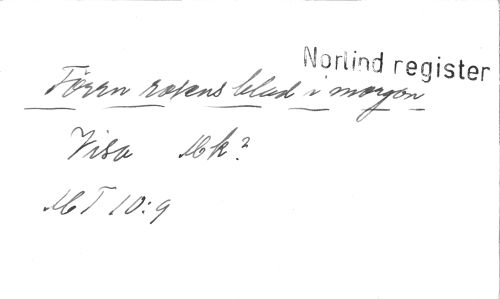 Norlind register
Förrn rosens blad i morgon
Visa Mk?
MT 10:9